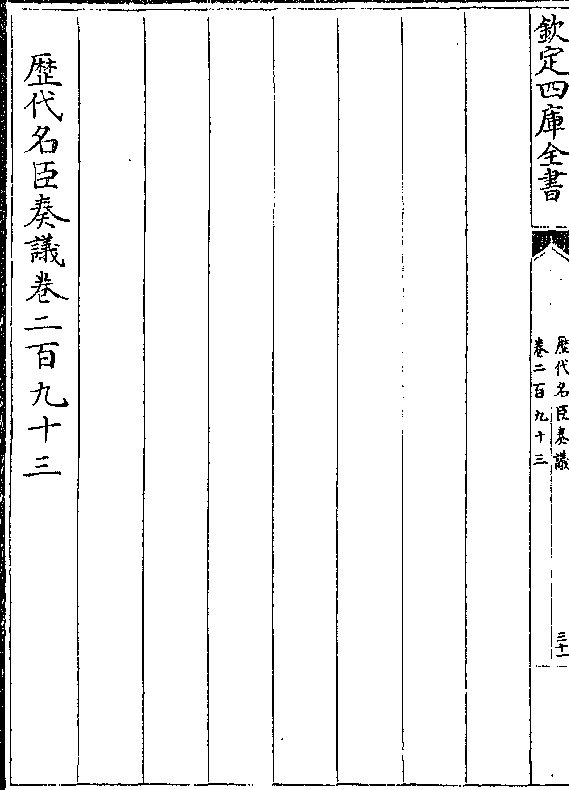 欽定四庫全書
歴代名臣奏議
卷二百九十三
三十一
歴代名臣奏議卷二百九十三